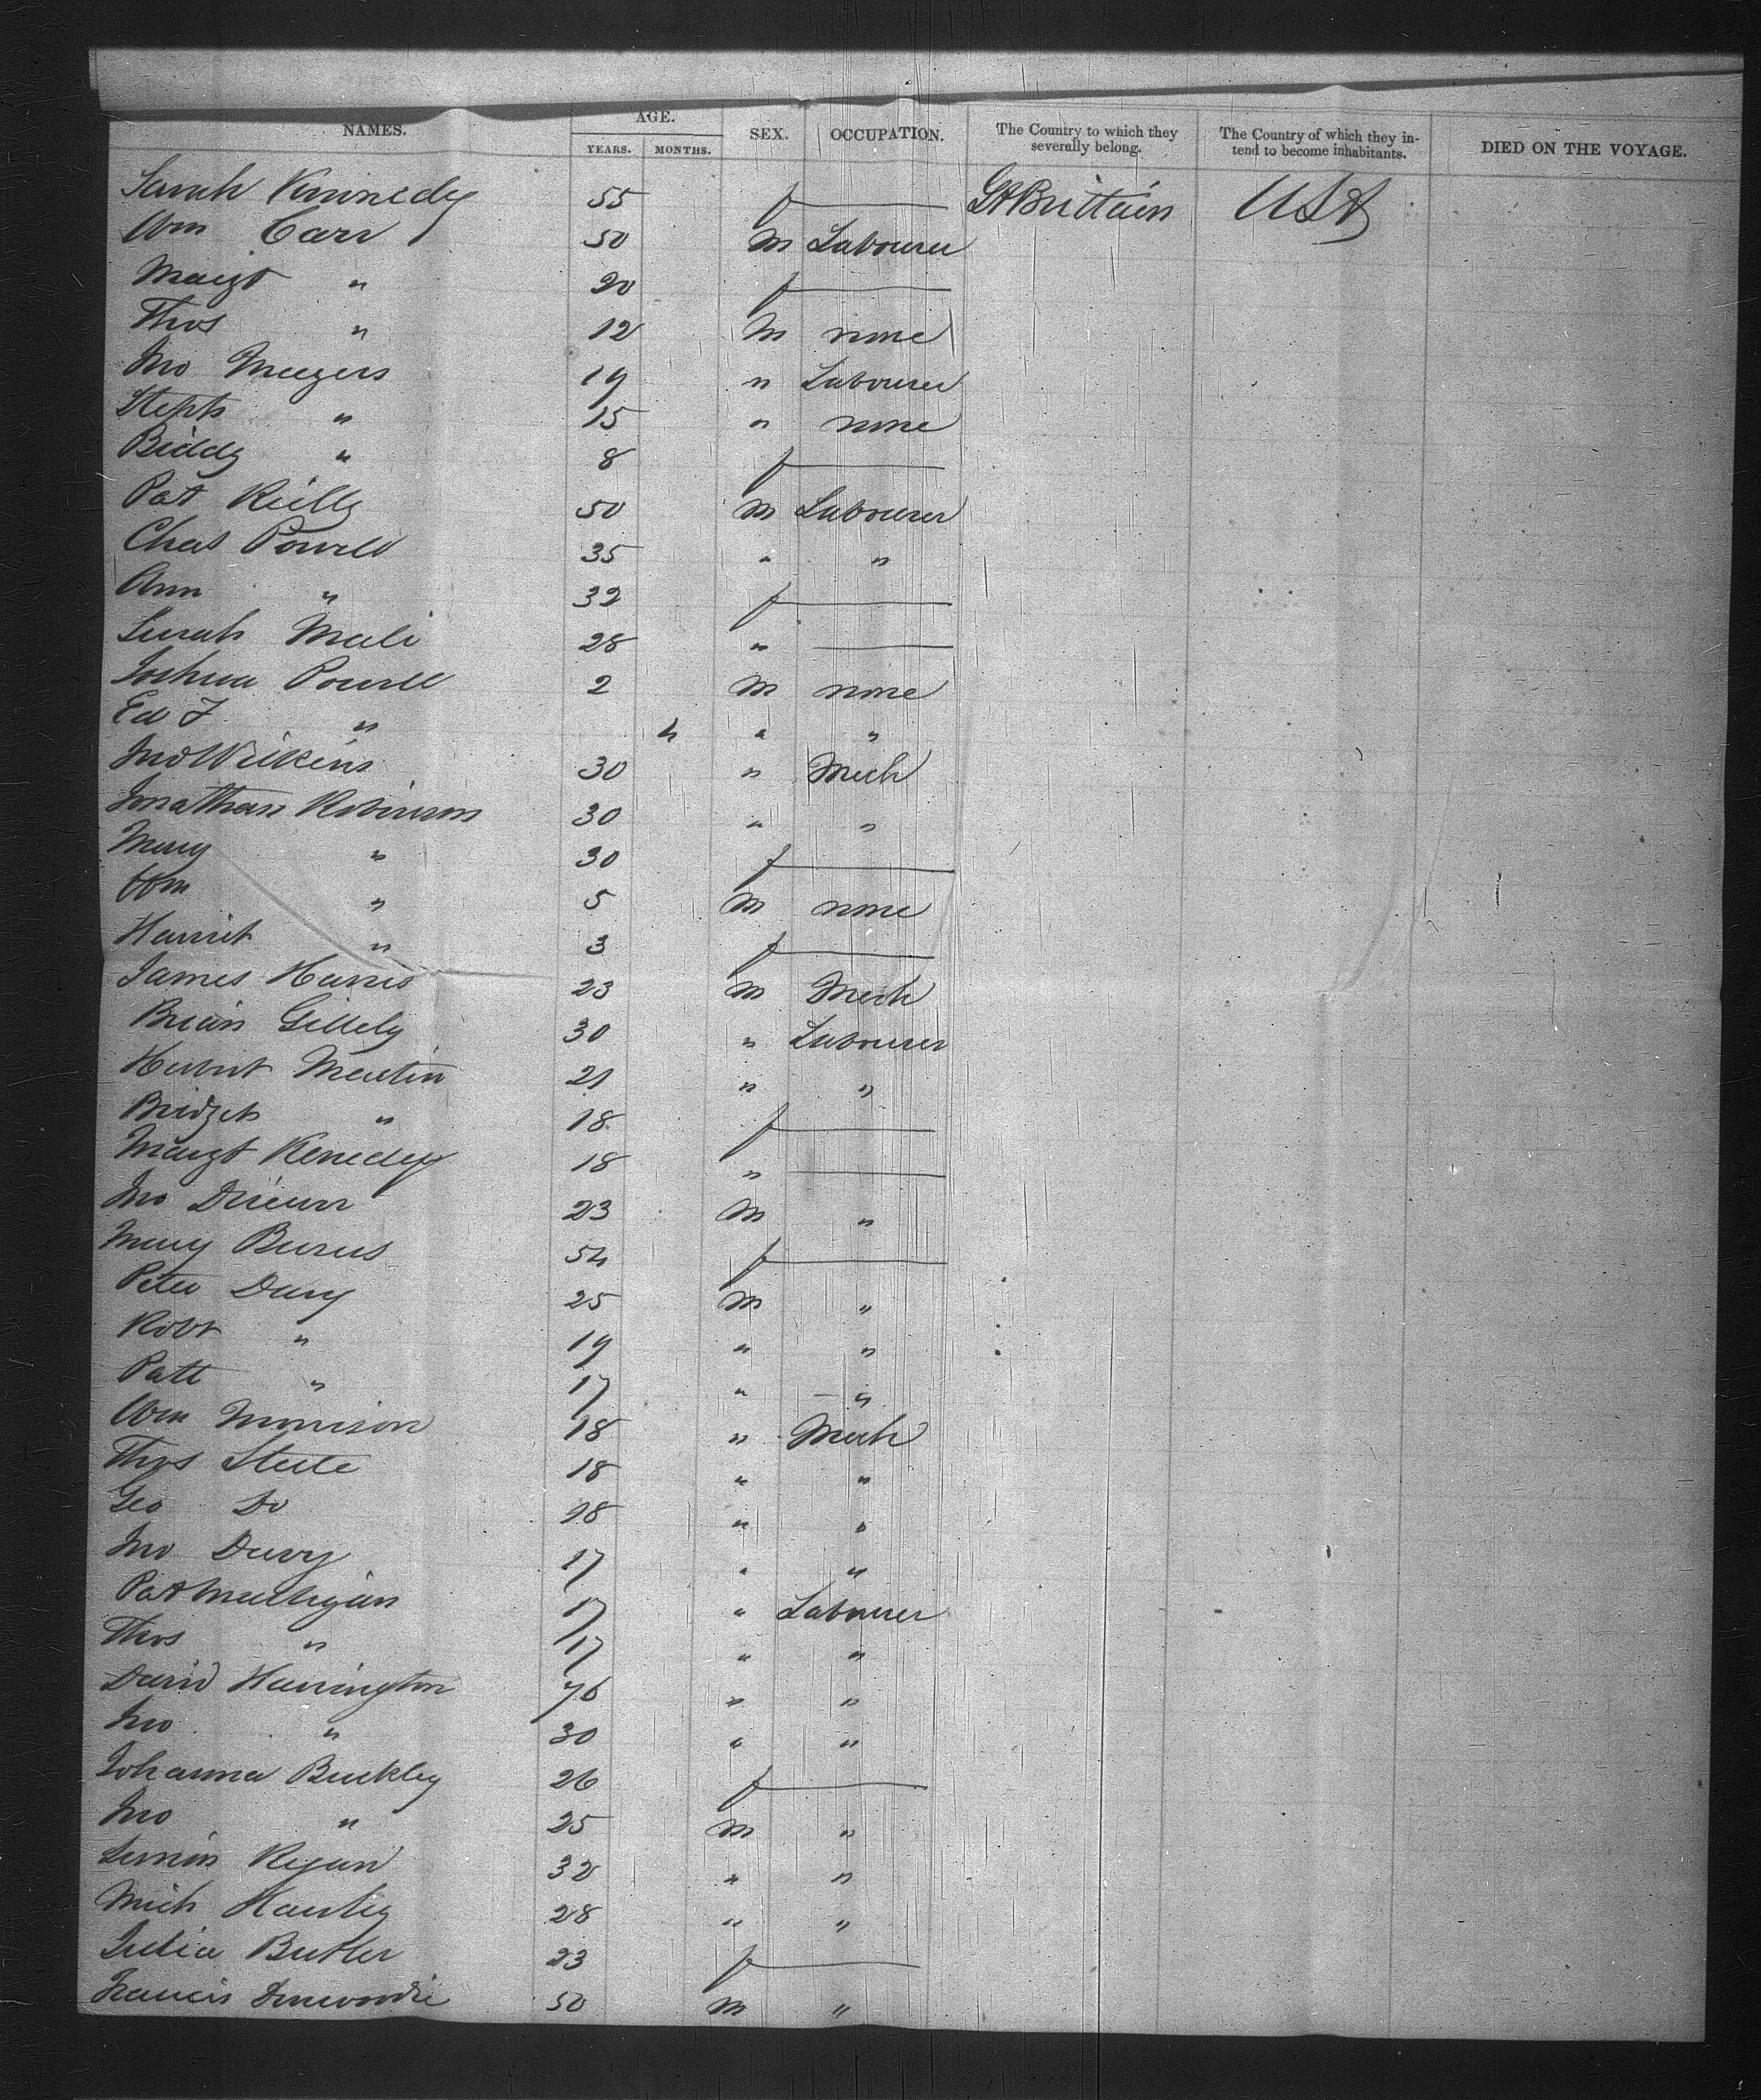 NAMES. AGE. SEX. OCCUPATION. The Country to which they severally belong. The Country of which they intend to become inhabitants. DIED ON THE VOYAGE.
YEARS. MONTHS.
Sarah Kennedy 55 f — Gt Brittain USA
Wm Carr 50 M Labourer
Margt " 20 f —
Thos " 12 M none
Jno Meegers 19 " Labourer
Steph " 15 " none
Biddy " 8 f —
Pat Reilly 50 M Labourer
Chas Powell 35 " "
Ann " 32 f —
Sarah Meali 28 " —
Joshua Powell 2 M none
Ed J " 4 " "
Jno Wilkins 30 " Mech
Jonathan Robinson 30 " "
Mary " 30 f —
Wm " 5 M none
Harriet " 3 f —
James Harris 23 M Mech
Brian Gillely 30 " Labourer
Hubert Martin 21 " "
Bridget " 18 f —
Margt Kenedey 18 " —
Jno 23 M "
Mary Burns 54 f —
Peter Davy 25 M "
Robt " 19 " "
Patt " 17 " "
Wm Morrison 18 " Mech
Thos Steele 18 " "
Geo Do 18 " "
Jno Davy 17 " "
Pat Mulligan 17 " Labourer
Thos " 17 " "
David Harrington 46 " "
Jno " 30 " "
Johanna Buckley 26 f —
Jno " 25 M "
Simon Regan 32 " "
Mich Hanley 28 " "
Julia Butler 23 f —
Francis Dinwoodie 50 M "